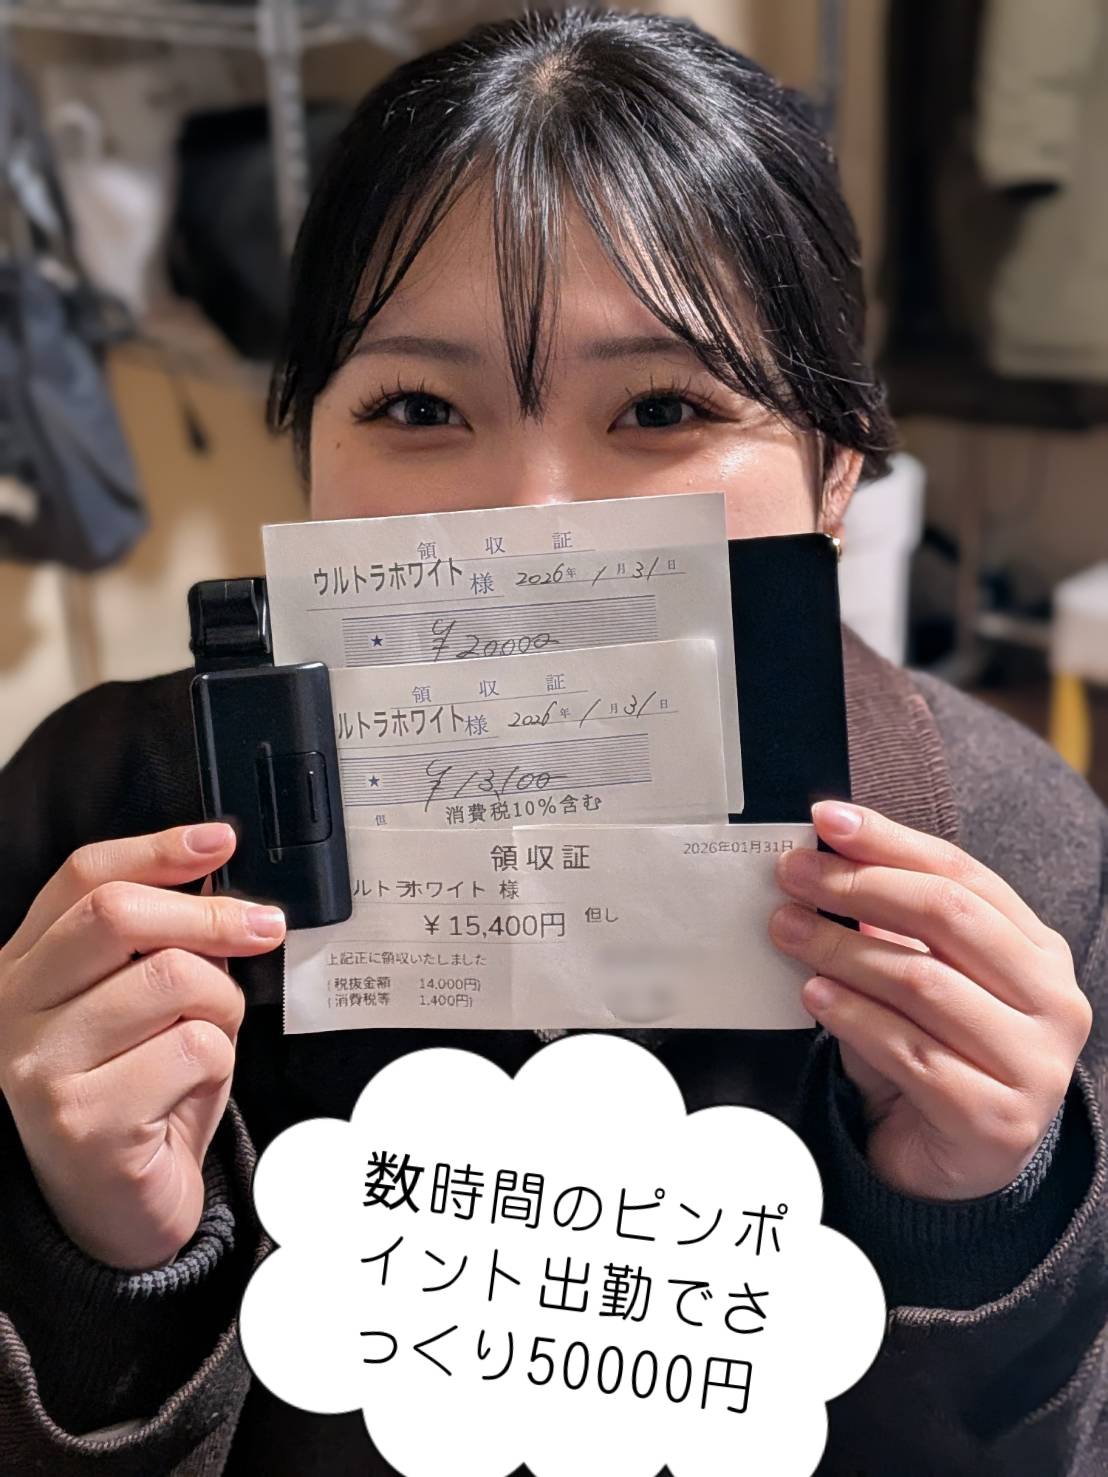 領収証
ウルトラホワイト 様 2026年 1月31日
★ ¥20000-
領収証
ルトラホワイト様 2026年 1月31日
★ ¥13,100-
但 消費税10%含む
領収証 2026年01月31日
ルトラホワイト 様
¥15,400円 但し
上記正に領収いたしました
(税抜金額 14,000円)
(消費税等 1,400円)
数時間のピンポ
イント出勤でさ
っくり50000円